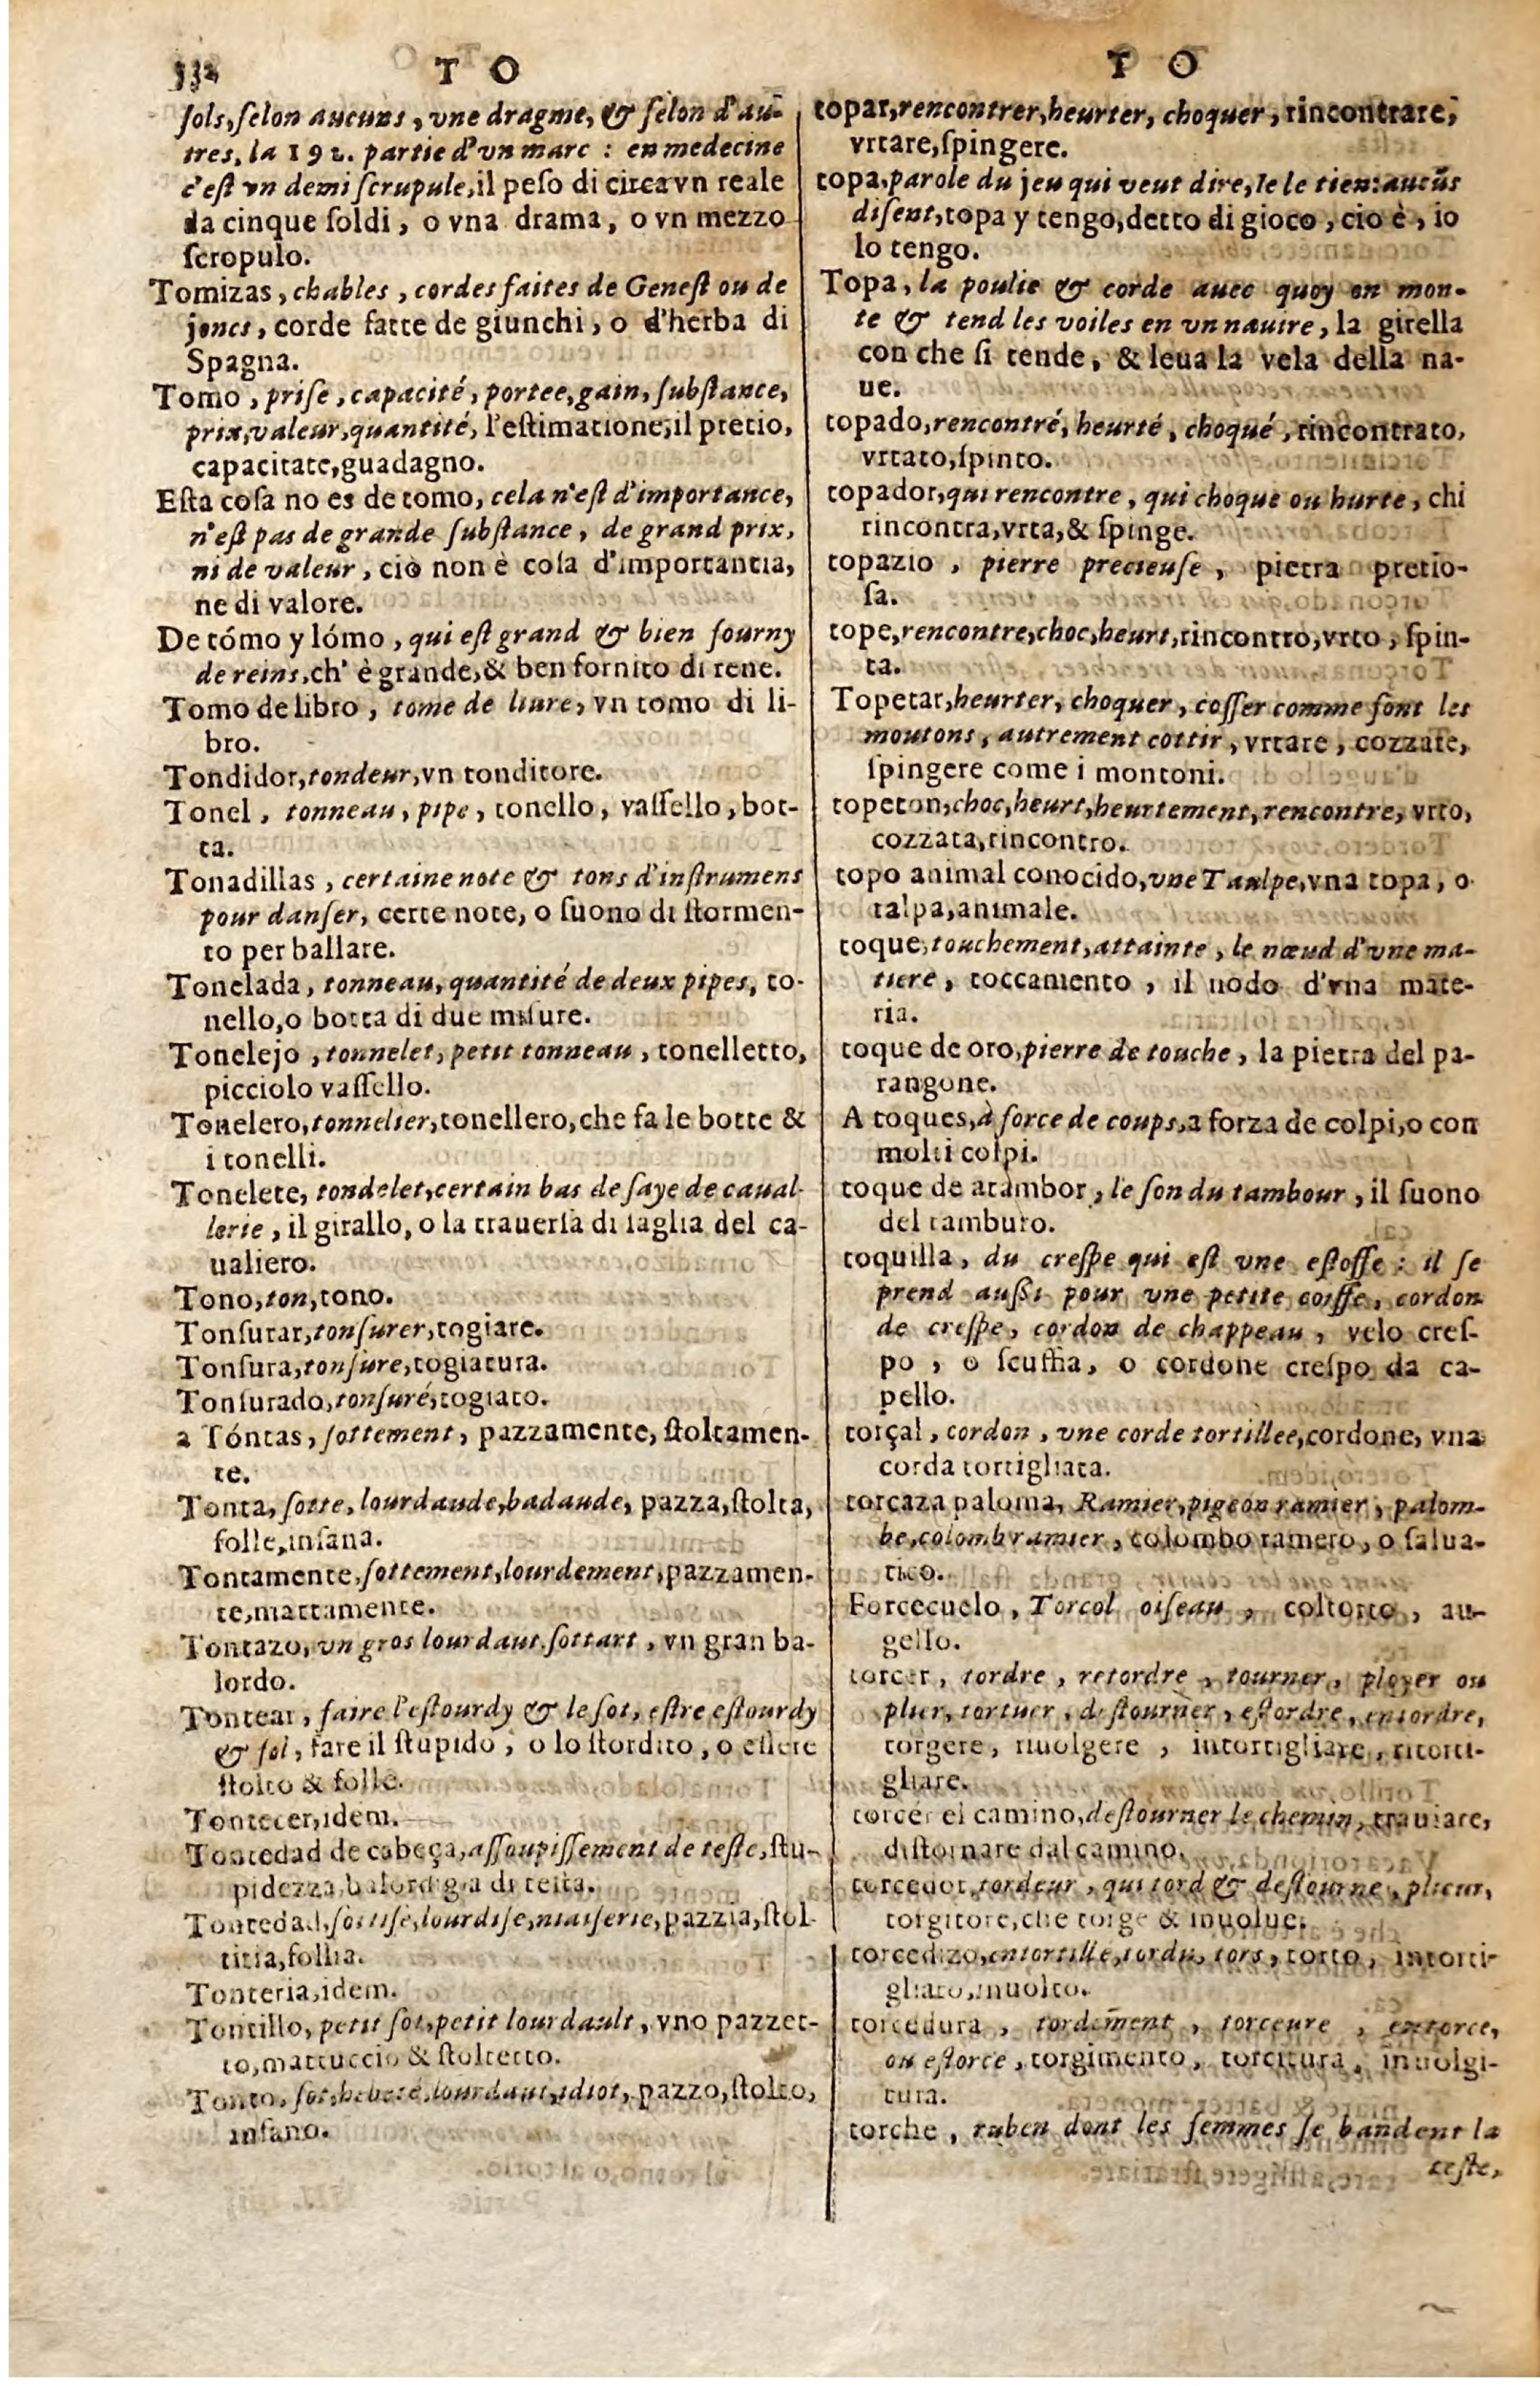 332 T O
ſols, ſelon aucuns, vne dragme, & ſelon d'au-
tres, la 192. partie d'vn marc : en medecine
c'eſt vn demi ſcrupule, il peſo di circa vn reale
da cinque ſoldi, o vna drama, o vn mezzo
ſcropulo.
Tomizas, chables, cordes faites de Geneſt ou de
joncs, corde fatte de giunchi, o d'herba di
Spagna.
Tomo, priſe, capacité, portee, gain, ſubſtance,
prix, valeur, quantité, l'eſtimatione, il pretio,
capacitate, guadagno.
Eſta coſa no es de tomo, cela n'eſt d'importance,
n'eſt pas de grande ſubſtance, de grand prix,
ni de valeur, ciò non è coſa d'importantia,
ne di valore.
De tómo y lómo, qui eſt grand & bien fourny
de reins, ch' è grande, & ben fornito di rene.
Tomo de libro, tome de liure, vn tomo di li-
bro.
Tondidor, tondeur, vn tonditore.
Tonel, tonneau, pipe, tonello, vaſſello, bot-
ta.
Tonadillas, certaine note & tons d'inſtrumens
pour danſer, certe note, o ſuono di ſtormen-
to per ballare.
Tonelada, tonneau, quantité de deux pipes, to-
nello, o botta di due miſure.
Tonelejo, tonnelet, petit tonneau, tonelletto,
picciolo vaſſello.
Tonelero, tonnelier, tonellero, che fa le botte &
i tonelli.
Tonelete, tondelet, certain bas de ſaye de caual-
lerie, il girallo, o la trauerſa di ſaglia del ca-
ualiero.
Tono, ton, tono.
Tonſurar, tonſurer, togiare.
Tonſura, tonſure, togiatura.
Tonſurado, tonſuré, togiato.
a Tóntas, ſottement, pazzamente, ſtoltamen-
te.
Tonta, ſotte, lourdaude, badaude, pazza, ſtolta,
folle, inſana.
Tontamente, ſottement, lourdement, pazzamen-
te, mattamente.
Tontazo, vn gros lourdaut, ſottart, vn gran ba-
lordo.
Tontear, faire l'eſtourdy & le ſot, eſtre eſtourdy
& fol, fare il ſtupido, o lo ſtordito, o eſſere
ſtolto & folle.
Tontecer, idem.
Tontedad de cabeça, aſſoupiſſement de teſte, ſtu-
pidezza, balordigia di teſta.
Tontedad, ſottiſe, lourdiſe, niaiſerie, pazzia, ſtol-
titia, follia.
Tonteria, idem.
Tontillo, petit ſot, petit lourdault, vno pazzet-
to, mattuccio & ſtoltetto.
Tonto, ſot, hebeté, lourdaut, idiot, pazzo, ſtolto,
inſano.
T O
topar, rencontrer, heurter, choquer, rincontrare,
vrtare, ſpingere.
topa, parole du jeu qui veut dire, Ie le tien: aucūs
diſent, topa y tengo, detto di gioco, cio è, io
lo tengo.
Topa, la poulie & corde auec quoy on mon-
te & tend les voiles en vn nauire, la girella
con che ſi tende, & leua la vela della na-
ue.
topado, rencontré, heurté, choqué, rincontrato,
vrtato, ſpinto.
topador, qui rencontre, qui choque ou hurte, chi
rincontra, vrta, & ſpinge.
topazio, pierre precieuſe, pietra pretio-
ſa.
tope, rencontre, choc, heurt, rincontro, vrto, ſpin-
ta.
Topetar, heurter, choquer, coſſer comme font les
moutons, autrement cottir, vrtare, cozzate,
ſpingere come i montoni.
topeton, choc, heurt, heurtement, rencontre, vrto,
cozzata, rincontro.
topo animal conocido, vne Taulpe, vna topa, o
talpa, animale.
toque, touchement, attainte, le nœud d'vne ma-
tiere, toccamento, il nodo d'vna mate-
ria.
toque de oro, pierre de touche, la pietra del pa-
rangone.
A toques, à force de coups, a forza de colpi, o con
molti colpi.
toque de atambor, le ſon du tambour, il ſuono
del tamburo.
toquilla, du creſpe qui eſt vne eſtoffe : il ſe
prend auſſi pour vne petite coiffe, cordon
de creſpe, cordon de chappeau, velo creſ-
po, o ſcuffia, o cordone creſpo da ca-
pello.
torçal, cordon, vne corde tortillee, cordone, vna
corda tortigliata.
torcaza paloma, Ramier, pigeon ramier, palom-
be, colomb ramier, colombo ramero, o ſalua-
tico.
Forcecuelo, Torcol oiſeau, coltorto, au-
gello.
torcer, tordre, retordre, tourner, ployer ou
plier, tortuer, deſtourner, eſtordre, entordre,
torgere, riuolgere, intortigliare, ritorti-
gliare.
torcer el camino, deſtourner le chemin, trauiare,
diſtornare dal camino.
torcedor, tordeur, qui tord & deſtourne, plieur,
torgitore, che torge & inuolue.
torcedizo, entortillé, tordu, tors, torto, intorti-
gliato, inuolto.
torcedura, tordement, torceure, entorce,
ou eſtorce, torgimento, torcitura, inuolgi-
tura.
torche, ruben dont les femmes ſe bandent la
teſte,